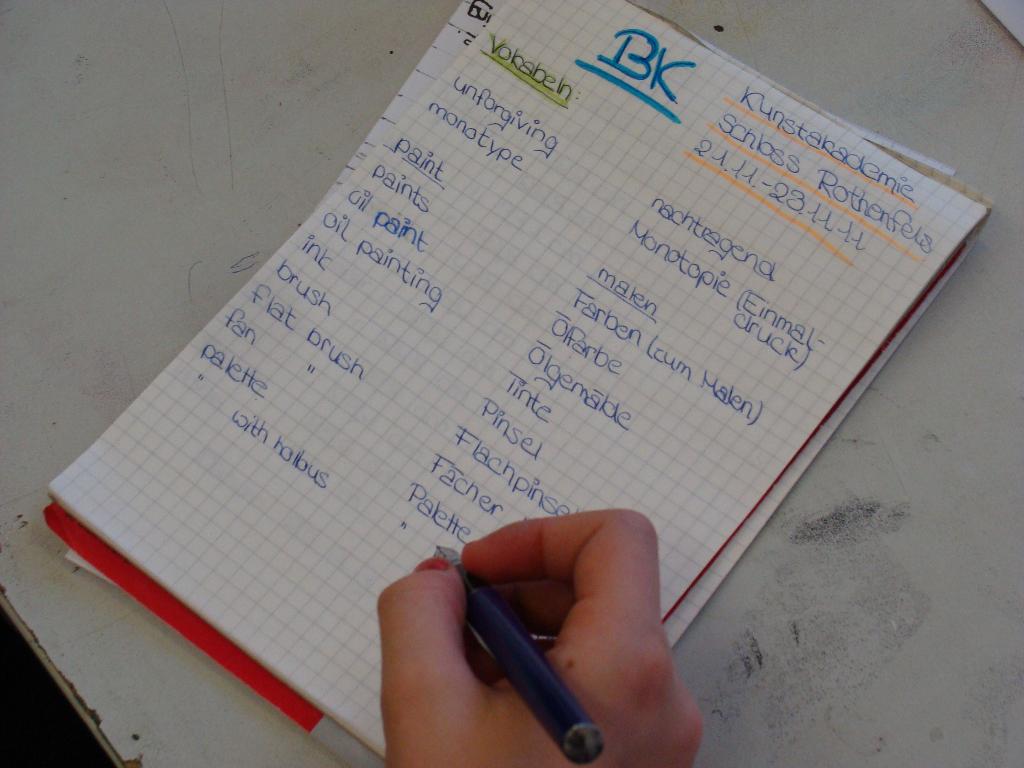 BK
Kunstakademie
Schloss Rothenfels
21.11.-23.11.11
Vokabeln:
unforgiving nachtragend
monotype Monotopie (Einmal-
druck)
paint malen
paints Farben (zum Malen)
oil paint Ölfarbe
oil painting Ölgemälde
ink Tinte
brush Pinsel
flat brush Flachpinsel
fan " Fächer
palette Palette
" with holbus "